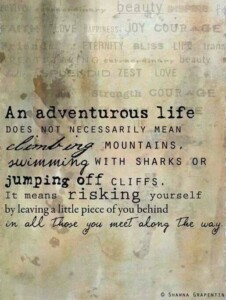 beauty
JOY COURAGE
LOVE
ETERNITY BLISS LIFE
ZEST LOVE
STRENGTH COURAGE
An adventurous life
DOES NOT NECESSARILY MEAN
climbing MOUNTAINS,
swimming WITH SHARKS OR
jumping off CLIFFS.
It means risking yourself
by leaving a little piece of you behind
in all those you meet along the way
© SHANNA GRAPENTIN